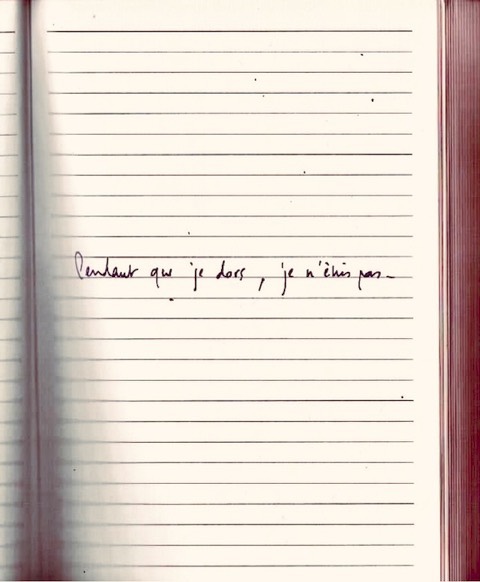 Pendant que je dors, je n'écris pas.